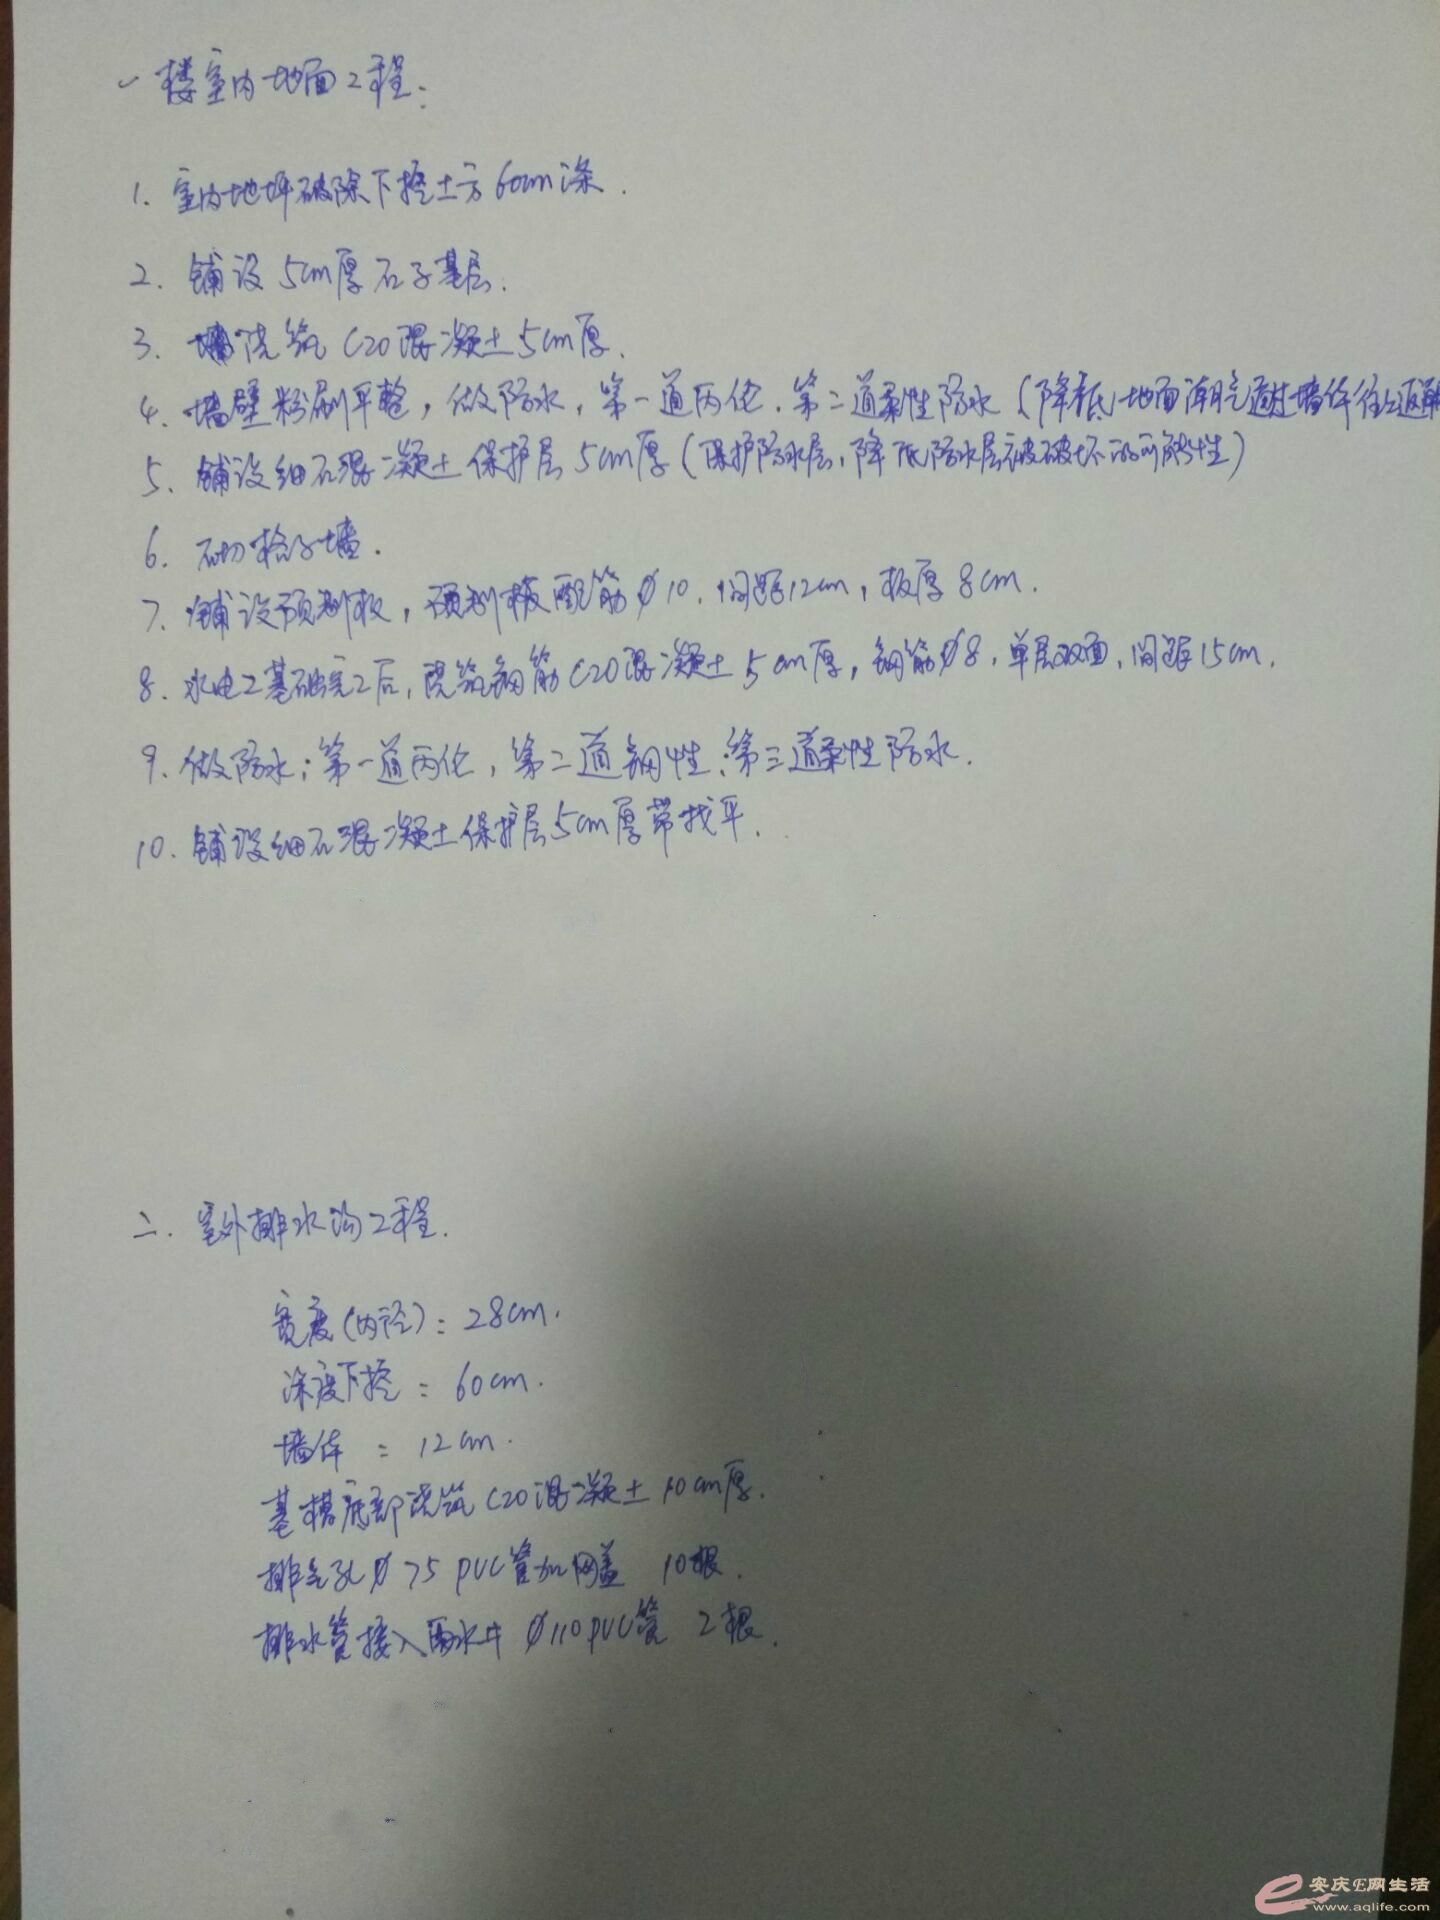 一楼室内地面工程:
1. 室内地坪破除下挖土方60cm深.
2. 铺设5cm厚石子基层.
3. 浇筑C20混凝土5cm厚.
4. 墙壁粉刷平整,做防水,第一道丙伦.第二道柔性防水(降低地面潮气通过墙体往上返
5. 铺设细石混凝土保护层5cm厚(保护防水层,降低防水层被破坏的可能性)
6. 砌格子墙.
7. 铺设预制板,预制板配筋Ø10.间距12cm,板厚8cm.
8. 水电工基础完工后,浇筑钢筋C20混凝土5cm厚,钢筋Ø8,单层双面,间距15cm.
9. 做防水:第一道丙伦,第二道钢性;第三道柔性防水.
10. 铺设细石混凝土保护层5cm厚带找平.
二. 室外排水沟工程.
宽度(内径):28cm.
深度下挖:60cm.
墙体:12cm.
基槽底部浇筑C20混凝土10cm厚.
排气孔Ø75PVC管加网盖 10根.
排水管接入雨水井 Ø110PVC管 2根.
安庆E网生活
www.aqlife.com